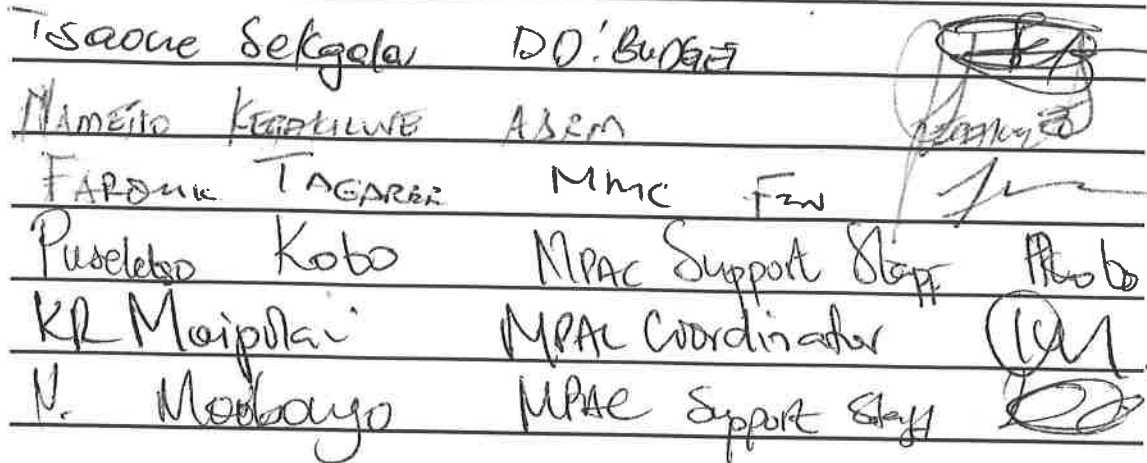 Tsaone Sekgala DD: BUDGET
MAMEITO KEGAKILWE
FAROUK TAGAREE MMC Fin
Puseletso Kobo MPAC Support Staff PKobo
KR Moipolai MPAC Coordinator KM
N. MPAC Support Staff